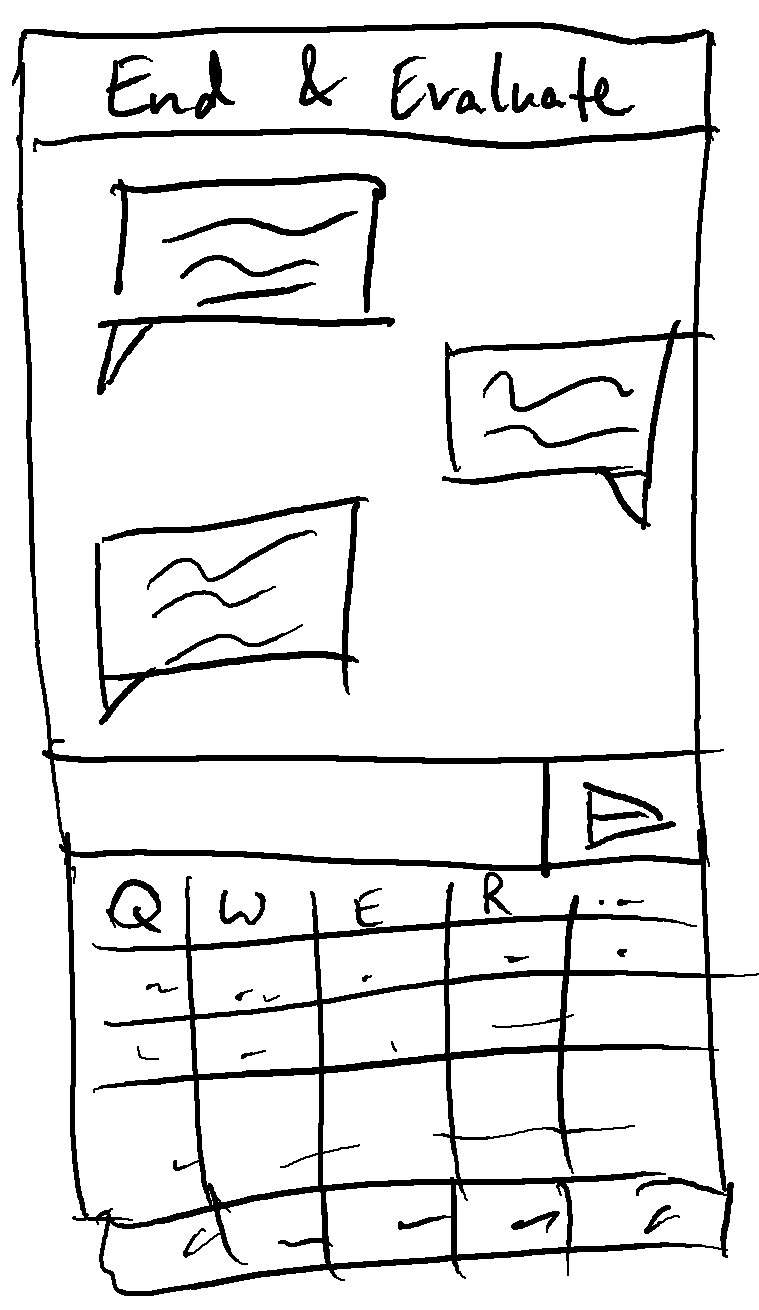 End & Evaluate
Q W E R ...